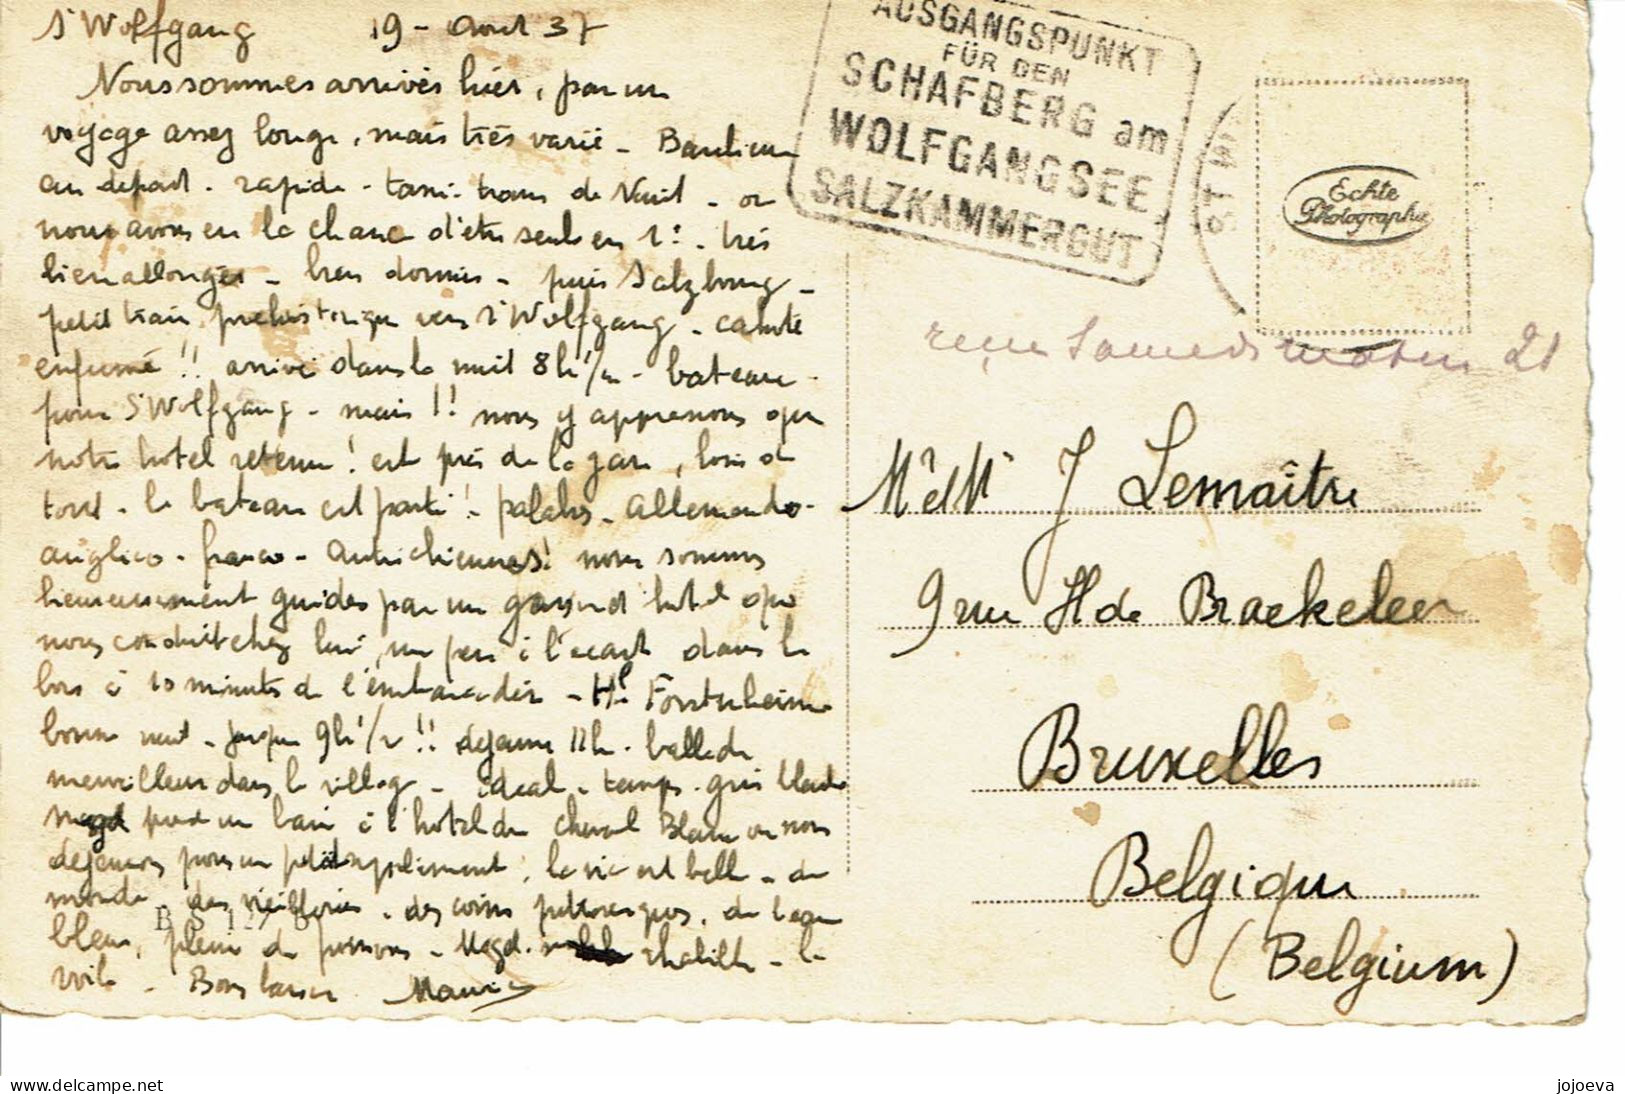 St Wolfgang 19 - Aout 37
Nous sommes arrivés hier, par un
voyage assez long, mais très varié - Banlieue
au depart - rapide - taxi - trains de Nuit - où
nous avons eu la chance d'être seuls en 1e - très
bien allongés - bien dormis - puis Salzbourg -
petit train prehistorique vers St Wolfgang - cahuté
enfumé !! arrivé dans la nuit 8h 1/2 - bateau -
pour St Wolfgang - mais !! nous y apprenons que
notre hotel retenu ! est près de la gare, loin de
tout - le bateau est parti ! - palabres - Allemando -
anglico - franco - Autrichiennes ! nous sommes
heureusement guidés par un hotel que
nous conduit chez lui, un peu à l'écart dans le
bois à 10 minutes de l'embarcadère - Hl Försterheim
bonne nuit - jusque 9h 1/2 !! dejeuner 11h - ballade
merveilleuse dans le village - idéal - temps - gris
Magd prend un bain à l'hotel du Cheval Blanc où nous
dejeunons pour un petit supplément, la vie est belle - du
monde - des vieilleries - des coins pittoresques, de l'eau
bleue, pleine de poissons - Magd. rhabille - la
voila - Bons baisers Maurice
B S 127 B
AUSGANGSPUNKT
FÜR DEN
SCHAFBERG am
WOLFGANGSEE
SALZKAMMERGUT
ST. W
Echte
Photographie
reçu Samedi matin 21
Mr et Me J Lemaître
9 rue H de Braekeleer
Bruxelles
Belgique
(Belgium)
www.delcampe.net
jojoeva